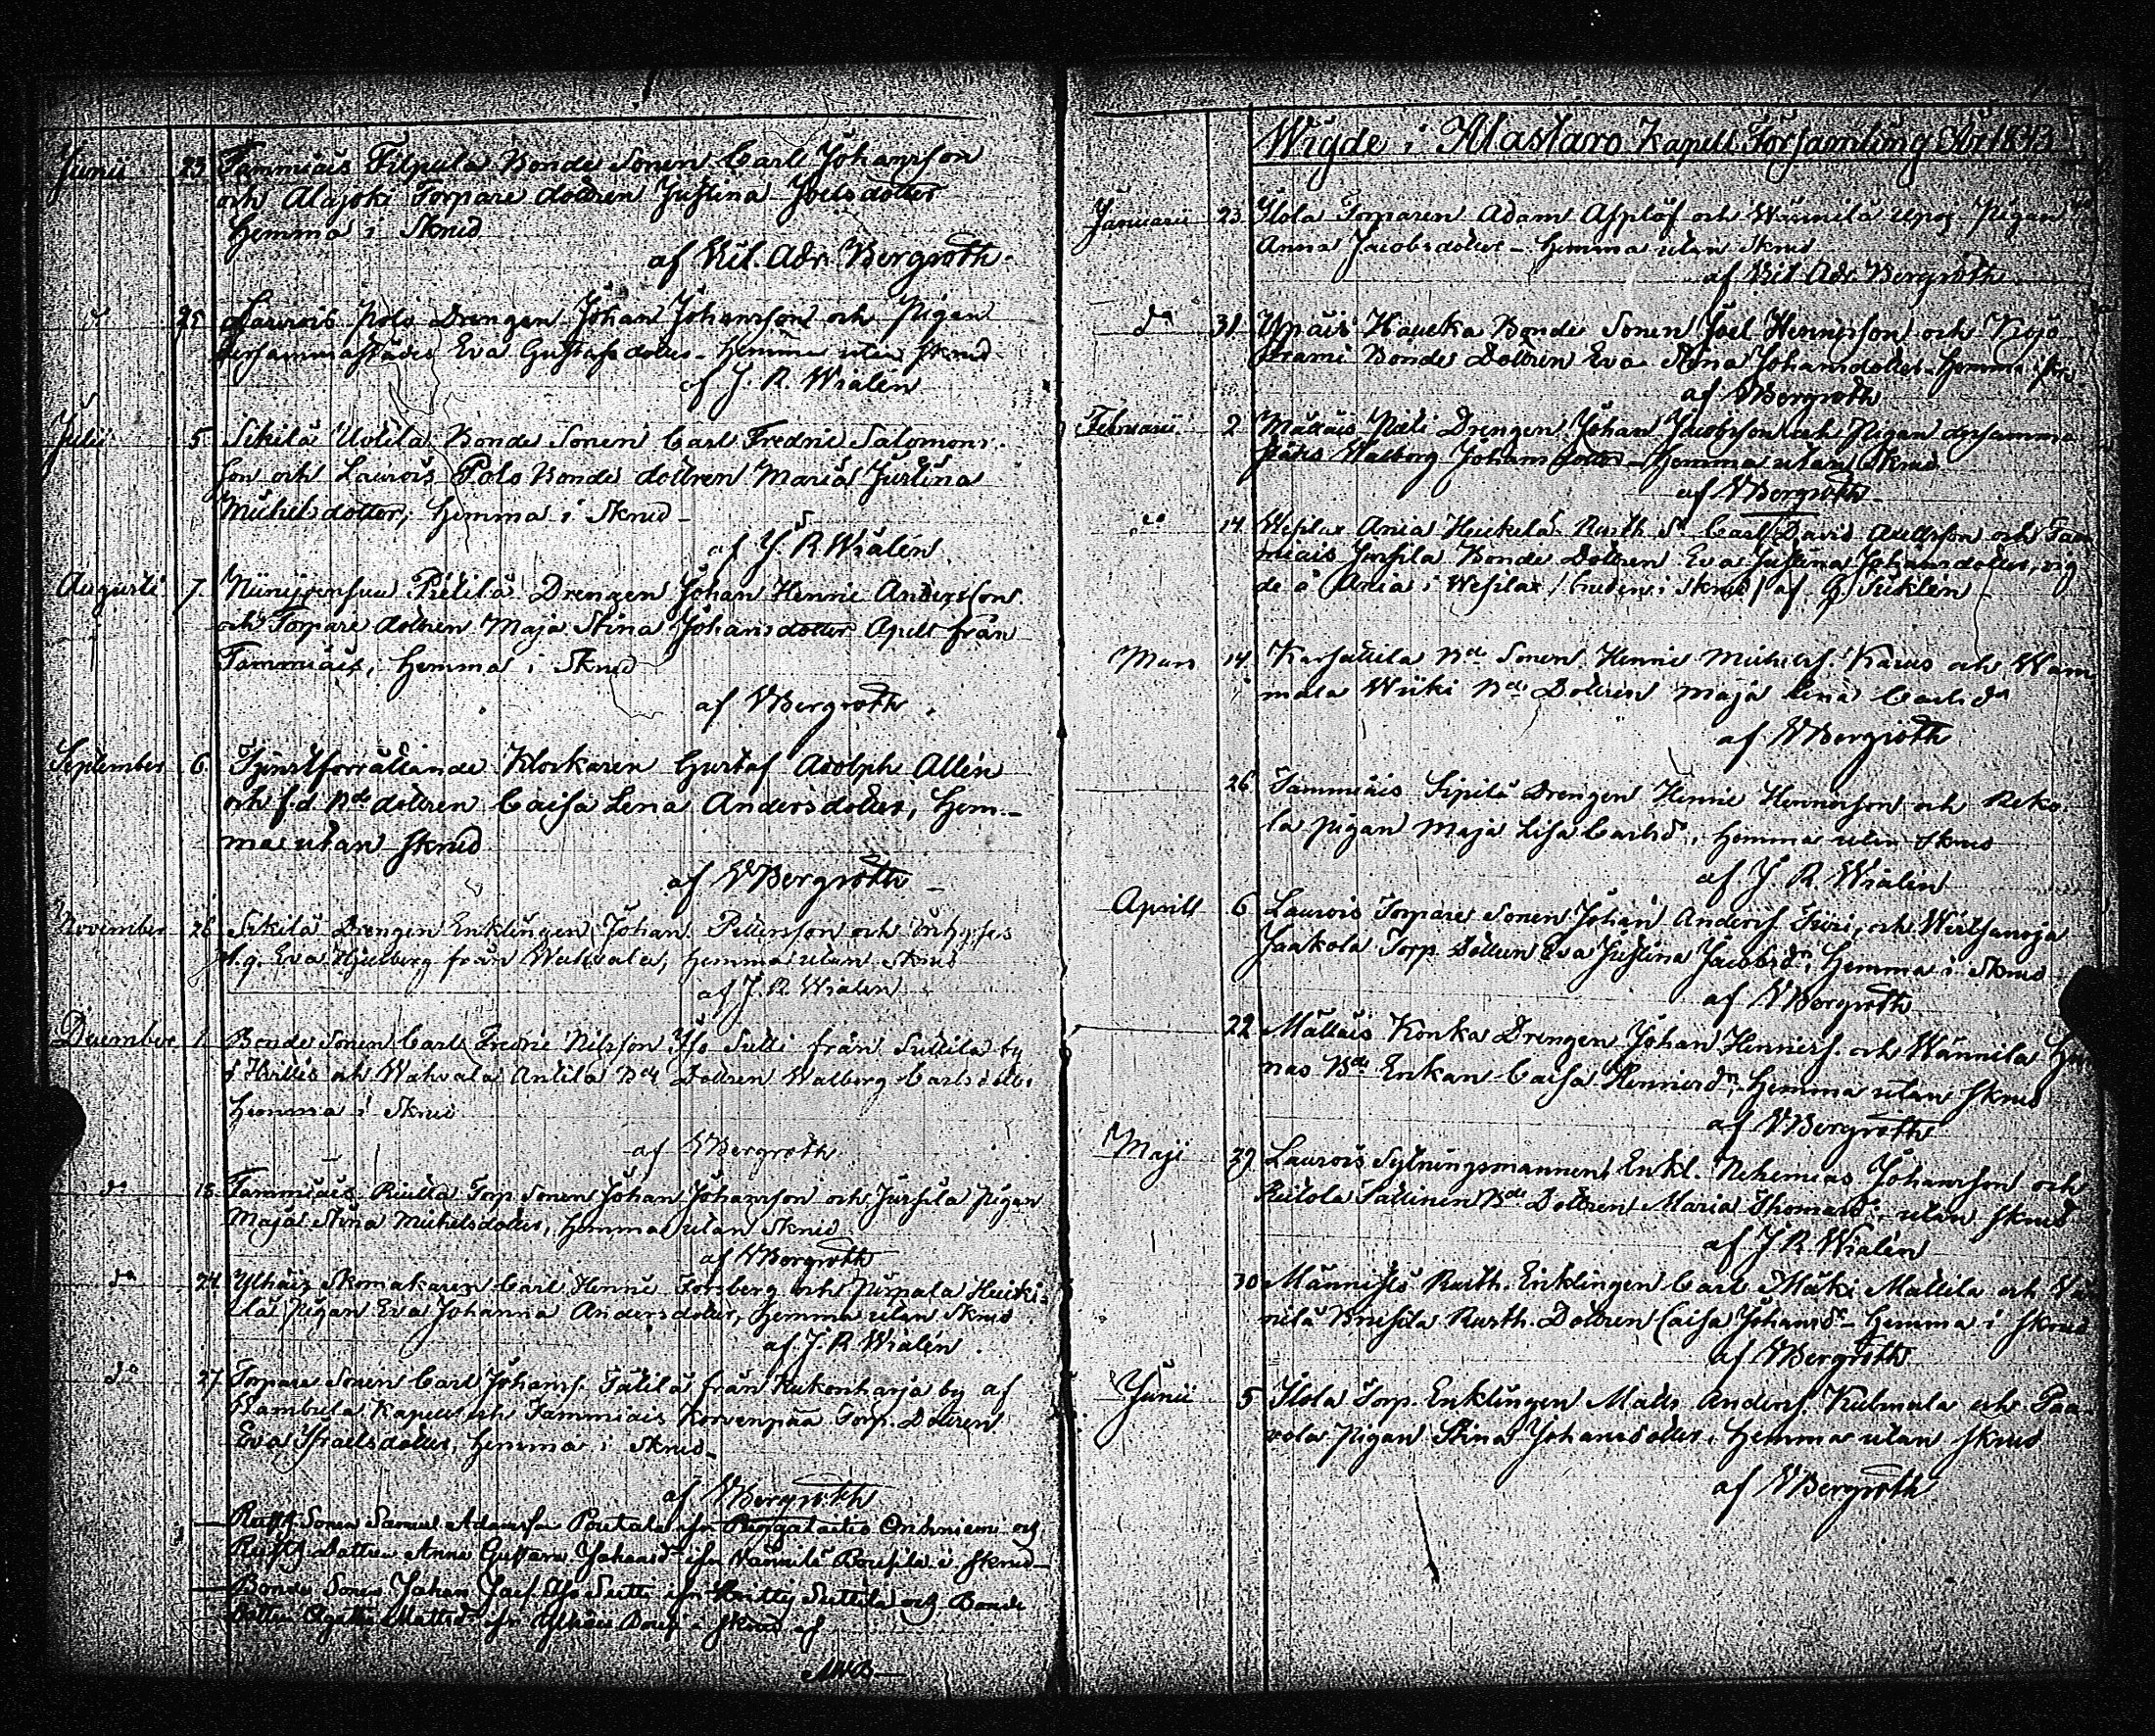 Junii 23. Tammiais Filpula Bonde Sonen Carl Johansson
och Alajoki Torpare dottren Justina Joelsdotter
Hemma i Skrud
af Vil. Adr. Bergroth.
d 25 Laurois Polo Drengen Johan Johansson och Pigan
dersammastädes Eva Gustafsdotter - Hemma utan Skrud
af J. R. Wialén
Julii 5 Sikilä Uotila Bonde Sonen Carl Fredric Salomons-
son och Laurois Polo Bonde dottren Maria Justina
Michelsdotter, Hemma i Skrud -
af J. R Wialén
Augusti 7. Pietilä Drengen Johan Henric Andersson
och Torpare dottren Maja Stina Johansdotter Apell från
Tammiais, Hemma i Skrud
af VBergroth.
September 6 Tjenstförrättande Klockaren Gustaf Adolph Allén
och f.d. Bde dottren Caisa Lena Andersdotter, Hem-
ma utan Skrud
af VBergroth -
November 26 Sikilä Drengen Enklingen Johan Pettersson och
Eva Hjelberg från Wahvala, Hemma utan Skrud
af J. R. Wialén
December 1 Bonde Sonen Carl Fredric Nilsson Iso Sutti från Suttila by
i Hvittis och Wahvala Antila Bde Dottren Walborg Carlsdotter
Hemma i Skrud
af VBergroth
do 18. Tammiais Torp. Sonen Johan Johansson och Jursila Pigan
Maja Stina Michelsdotter, Hemma utan Skrud
af VBergroth
do 24 Ylhäis Skomakaren Carl Henric Forsberg och Pirpala Heiki-
lä Pigan Eva Johanna Andersdotter, Hemma utan Skrud
af J. R. Wialén.
do 27. Torpare Sonen Carl Johanss. Tälilä från Kukonharja by af
Kambula Kapell och Tammiais Korvenpää Torp. Dottren
Eva Israelsdotter, Hemma i Skrud -
af VBergroth
Sonen Samuel Adamsson
Dottren Anna Gustava Johansd. ifr Vännilä i Skrud -
Bonde Sonen Johan Iso Sutti ifr Hvittis Suttila och Bonde
Dottren Mattsd. ifr Ylhäis i Skrud af
Wigde i Klastaro Kapell Församling År 1843
Januarii 23. Ilola Torparen Adam Asplöf och Wännilä Pigan
Anna Jacobsdotter - Hemma utan Skrud
af Vil Adr. Bergroth
do 31. Ypäis Haucka Bonde Sonen Joel Henricsson och
Bonde Dottren Eva Stina Johansdotter. Hemma i
af VBergroth
Februarii 2 Mällais Drengen Johan Jacobsson och Pigan dersamma-
städes Walborg Johansdotter - Hemma utan Skrud
af VBergroth -
do 14 Wesilax Ania Heikelä Rusth. S. Carl David Axelsson och Tam-
miais Jursila Bonde Dottren Eva Justina Johansdotter, vig-
de å Ania i Wesilax / bruden i Skrud / af G. Siklén -
Mars 14. Karsattila Bde Sonen Henric Michelss. Karus och Wam-
mala Wiiki Bde Dottren Maja Lena Carlsdr
af VBergroth
26. Tammiais Sipilä Drengen Henric Henricsson och Reko-
la pigan Maja Lisa Carlsdr, Hemma utan Skrud
af J. R. Wialén
Aprill 6 Laurois Torpare Sonen Johan Anderss. och Wirtsanoja
Jaakola Torp. Dottren Eva Justina Jacobsdr, Hemma i Skrud
af VBergroth
22 Mällais Konka Drengen Johan Henricss. och Wännilä
Bde Enkan Caisa Henricsdr, Hemma utan Skrud
af VBergroth
Maji 29 Laurois Sytningsmannen, Enkl. Nehemias Johansson och
Sallinen Bde Dottren Maria Thomasdr, utan Skrud
af J. R. Wialén
30 Männistö Rusth. Enklingen Carl Mäki Mattila och Vän-
nilä Rusth. Dottren Caisa Johansdr - Hemma i Skrud
af VBergroth
Junii 5 Ilola Torp. Enklingen Matts Anderss. Kulmala och Paa-
vola Pigan Stina Johansdotter. Hemma utan Skrud
af VBergroth